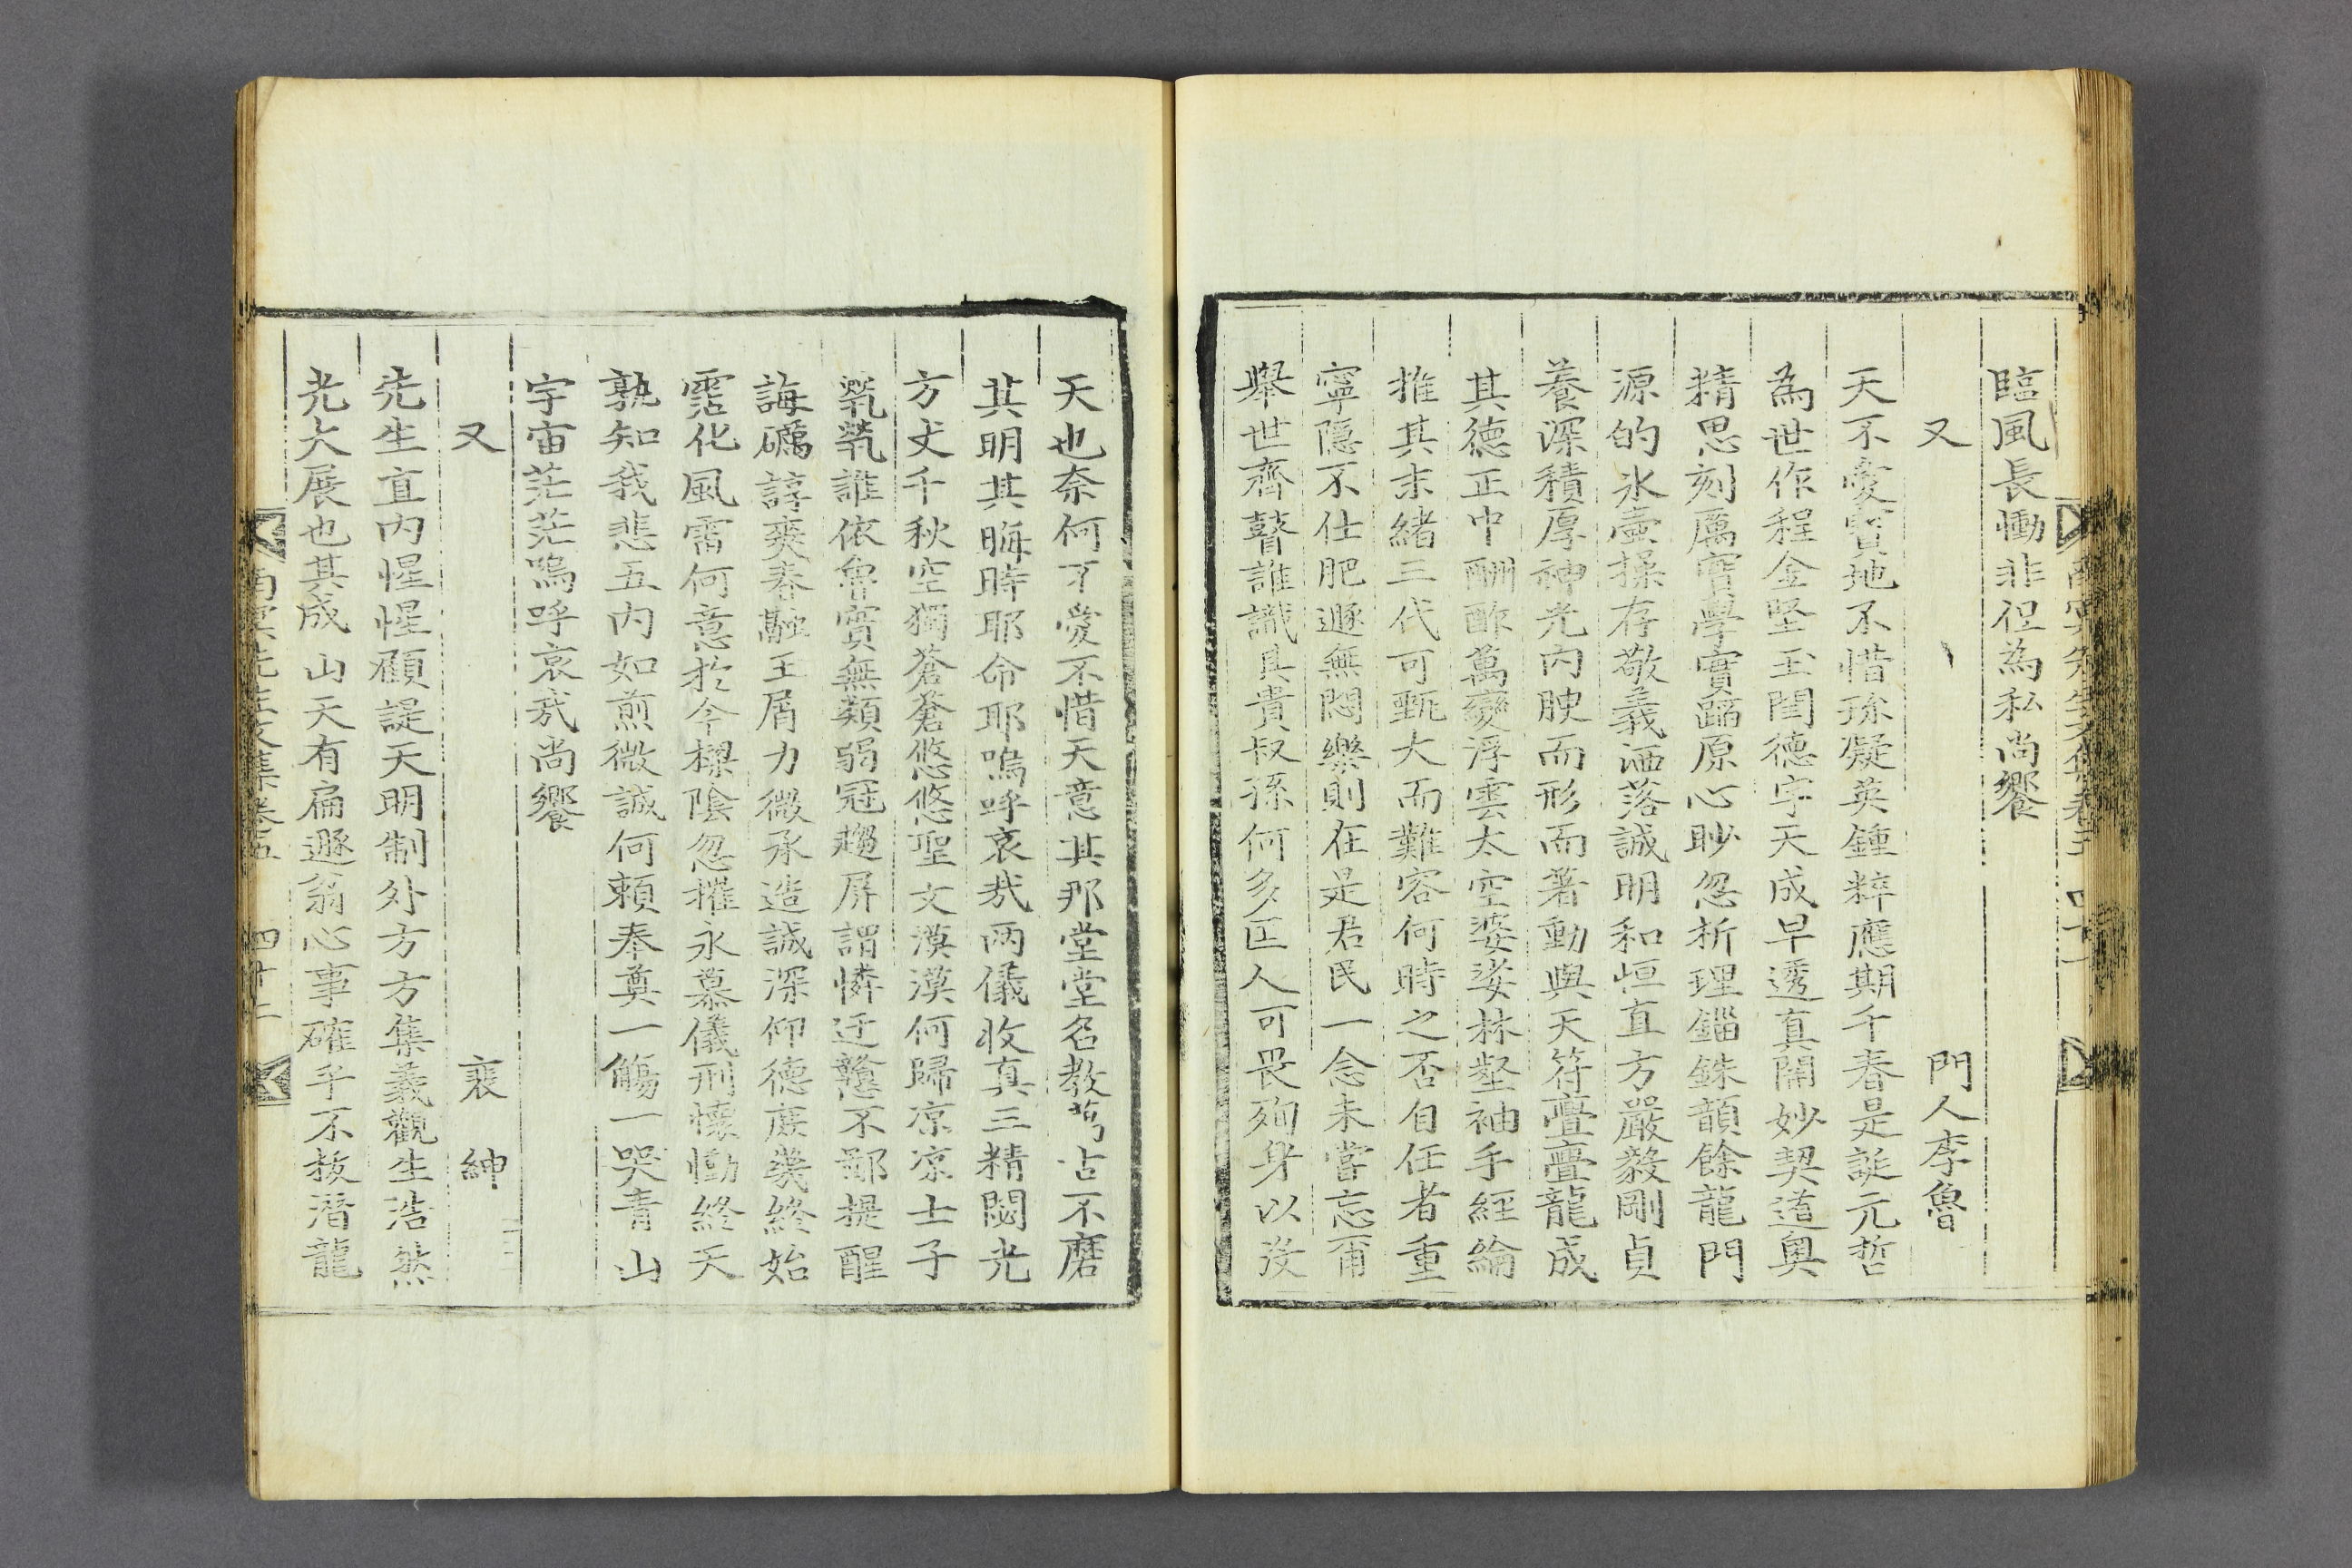 臨風長慟非但為私尚饗
又 門人李魯
天不愛寶地不惜珎凝英鍾粹應期千春是誕元哲
為世作程金堅玉閏德宇天成早透真關妙契道奧
精思刻厲實學實蹈原心眇忽析理錙銖韻餘龍門
源的氷壺操存敬義洒落誠明和恒直方嚴毅剛貞
養深積厚神光內腴而形而著動與天符亹亹龍成
其德正中酬酢萬變浮雲太空婆娑林壑袖手經綸
推其末緒三代可甄大而難容何時之否自任者重
寧隱不仕肥遯無悶樂則在是君民一念未嘗忘爾
舉世齊瞽誰識其貴叔孫何多匡人可畏殉身以沒
天也奈何不愛不惜天意其那堂堂名教芎古不磨
其明其晦時耶命耶嗚呼哀哉兩儀收真三精閟光
方丈千秋空獨蒼蒼悠悠聖文漠漠何歸凉凉士子
煢煢誰依魯實無類弱冠趨屏謂憐迂戇不鄙提醒
誨礪諄奭春融玉屑力微承造誠深仰德庶幾終始
霑化風雷何意於今樑陰忽摧永慕儀刑懷慟終天
孰知我悲五內如煎微誠何賴奉奠一觴一哭青山
宇宙茫茫嗚呼哀哉尚饗
又 裵紳
先生直內惺惺顧諟天明制外方方集義觀生浩然
光大展也其成山天有扁遯翁心事確乎不拔潛龍
南冥先生文集卷五 四十二